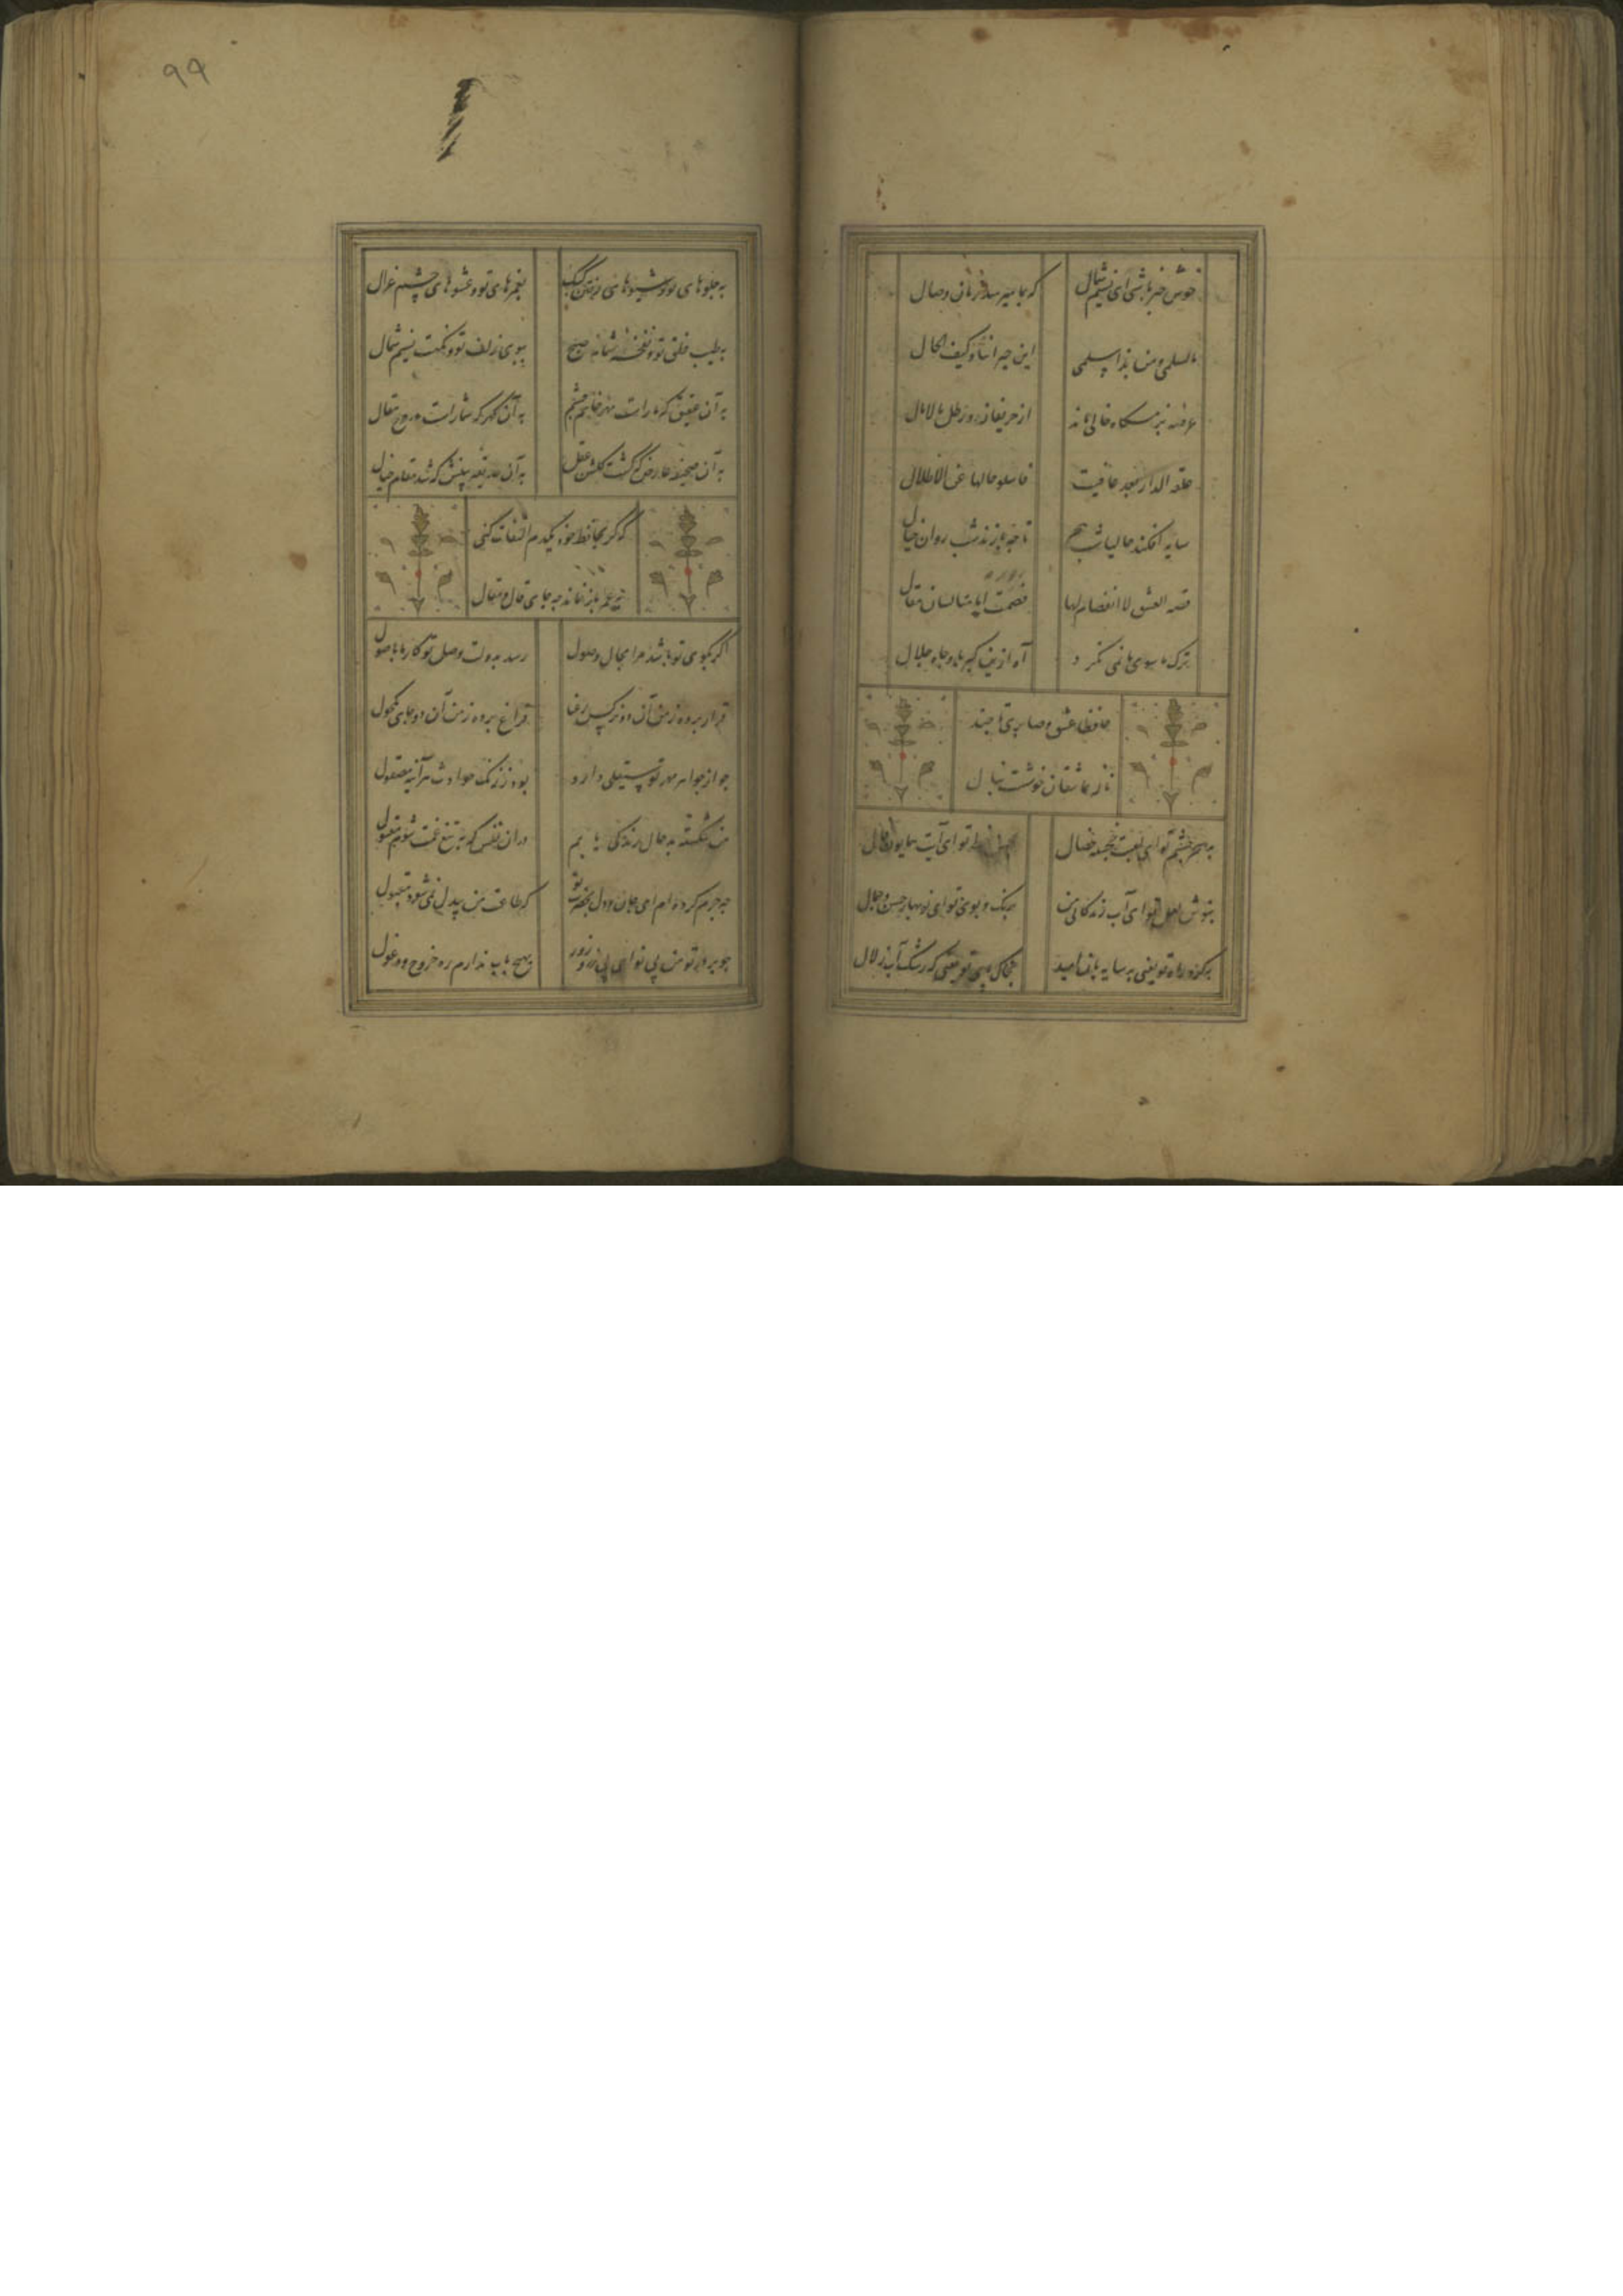 خوش خبر باشی ای نسیم شمال که بما میرسد زمان وصال
ما لسلمی و من بذی سلمی این جیراننا و کیف الحال
عرصه بزمگاه خالی ماند از حریفان و رطل مالامال
عفت الدار بعد عافیت فاسلوا حالها عن الاطلال
سایه افکند حالیا شب هجر تا چه بازند شب روان خیال
قصه العشق لا انفصام لها فصمت اینجا لسان مقال
ترک ما سوی ما نمی نکرد آه ازین کبریا و جاه و جلال
حافظا عشق و صابری تا چند
ناله عاشقان خوشست بنال
بسحر چشم تو ای لعبت خجسته خصال تو ای آیت همایون فال
بنوش لعل تو ای آب زندگانی من برنک و بوی تو ای نوبهار حسن و جمال
بکرد راه تو یعنی به سایه بان امید بخاک پای تو یعنی که رشک آب زلال
۹۹
به جلوهای تو و شیوهای رفتن کبک بغمزهای تو و عشوهای چشم غزال
بطیب خلق تو و نفخه شمامه صبح ببوی زلف تو و نکهت نسیم شمال
به آن عقیق که ما راست مهر خاتم چشم به آن کهر که شما راست درج مقال
به آن صحیفه عارض که کشت کلشن عقل به آن حدیقه بینش که شد مقام خیال
که کر بحافظ خود یکدم التفات کنی
بازنماند چه جای قال و مقال
اگر بکوی تو باشد مرا مجال وصول رسد بدولت وصل تو کار ما باصول
قرار برده ز من آن دو نرکس رعنا فراغ برده ز من آن دو جادوی مکحول
چو از جواهر مهر تو صیقلی دارد بود ز زنک حوادث هر آینه مصقول
من شکسته بدحال زندکی یابم در آن نفس که به تیغ غمت شوم مقتول
چه جرم کرده ام ای جان و دل بحضرت تو که طاعت من بیدل نمی شود مقبول
چو بر در تو من بی نوای بی زر و زور بهیچ باب ندارم ره خروج و دخول